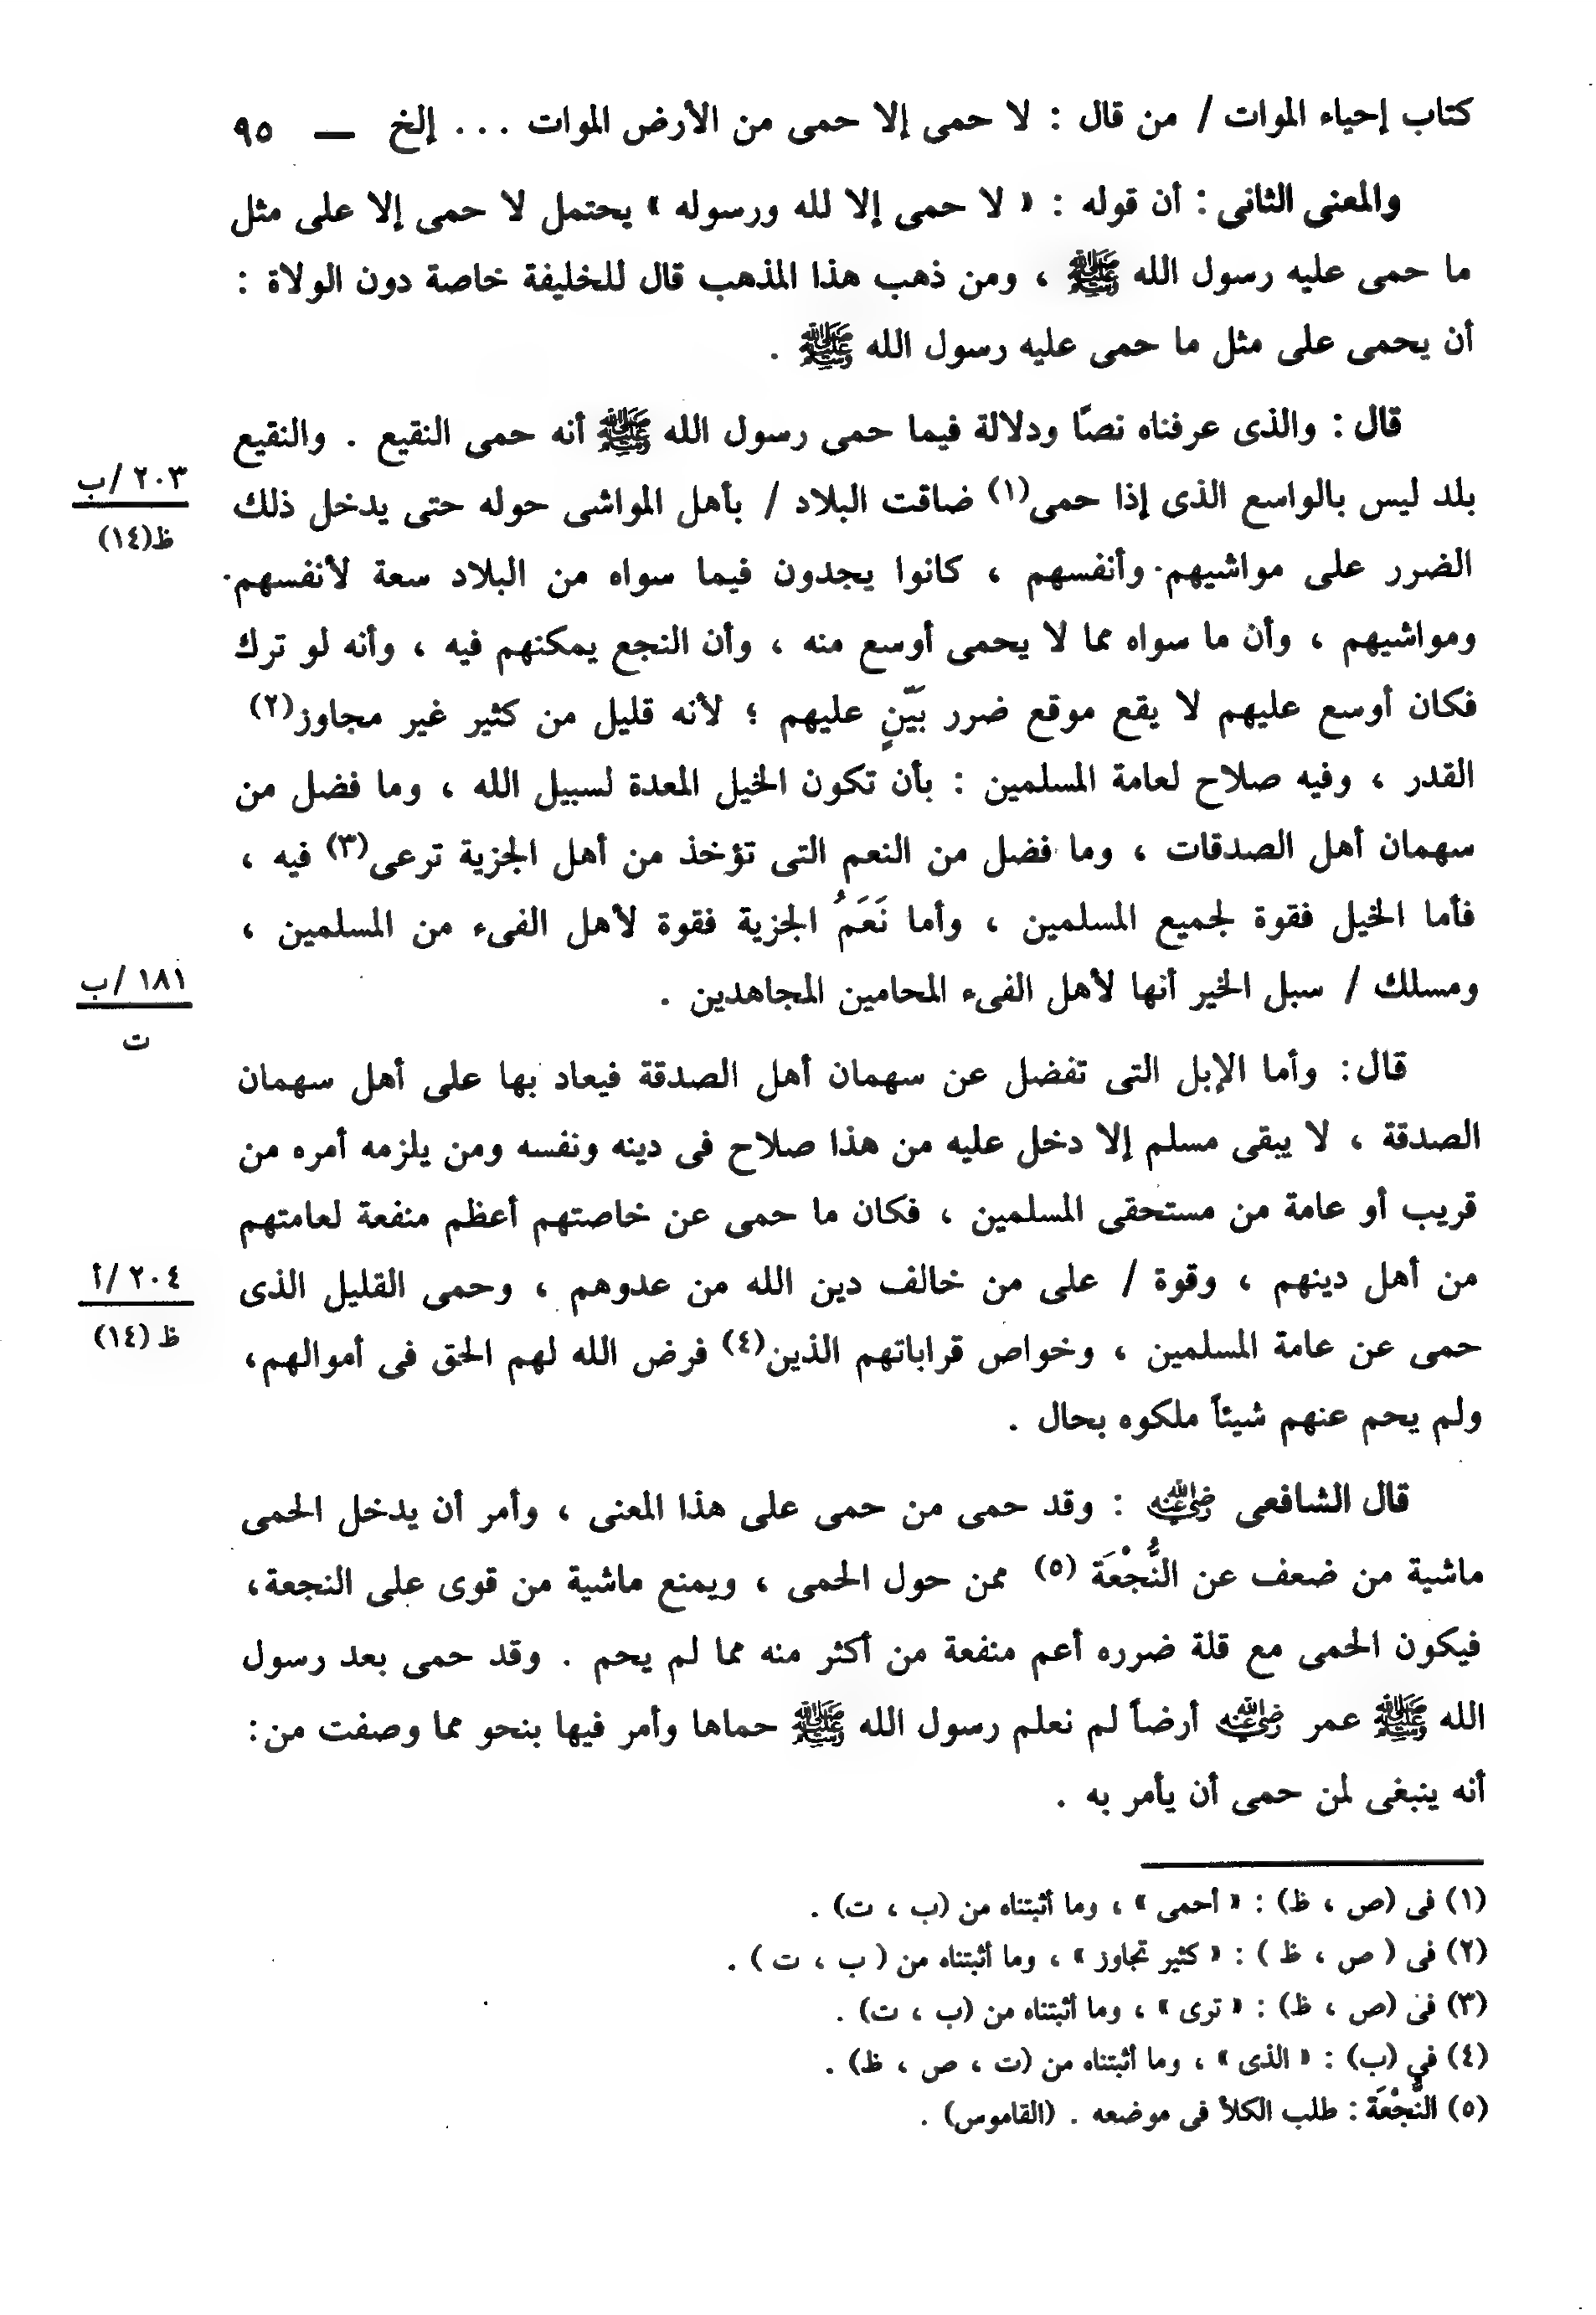 كتاب إحياء الموات / من قال : لا حمى إلا حمى من الأرض الموات ... إلخ — ٩٥
والمعنى الثانى : أن قوله : « لا حمى إلا لله ورسوله » يحتمل لا حمى إلا على مثل
ما حمى عليه رسول الله ﷺ ، ومن ذهب هذا المذهب قال للخليفة خاصة دون الولاة :
أن يحمى على مثل ما حمى عليه رسول الله ﷺ .
قال : والذى عرفناه نصّا ودلالة فيما حمى رسول الله ﷺ أنه حمى النقيع . والنقيع
بلد ليس بالواسع الذى إذا حمى(١) ضاقت البلاد / بأهل المواشى حوله حتى يدخل ذلك
٢٠٣ /ب
ظ(١٤)
الضرر على مواشيهم وأنفسهم ، كانوا يجدون فيما سواه من البلاد سعة لأنفسهم
ومواشيهم ، وأن ما سواه مما لا يحمى أوسع منه ، وأن النجع يمكنهم فيه ، وأنه لو ترك
فكان أوسع عليهم لا يقع موقع ضرر بَيِّنٍ عليهم ؛ لأنه قليل من كثير غير مجاوز(٢)
القدر ، وفيه صلاح لعامة المسلمين : بأن تكون الخيل المعدة لسبيل الله ، وما فضل من
سهمان أهل الصدقات ، وما فضل من النعم التى تؤخذ من أهل الجزية ترعى(٣) فيه ،
فأما الخيل فقوة لجميع المسلمين ، وأما نَعَمُ الجزية فقوة لأهل الفىء من المسلمين ،
ومسلك / سبل الخير أنها لأهل الفىء المحامين المجاهدين .
١٨١ /ب
ت
قال : وأما الإبل التى تفضل عن سهمان أهل الصدقة فيعاد بها على أهل سهمان
الصدقة ، لا يبقى مسلم إلا دخل عليه من هذا صلاح فى دينه ونفسه ومن يلزمه أمره من
قريب أو عامة من مستحقى المسلمين ، فكان ما حمى عن خاصتهم أعظم منفعة لعامتهم
من أهل دينهم ، وقوة / على من خالف دين الله من عدوهم ، وحمى القليل الذى
٢٠٤ /أ
ظ (١٤)
حمى عن عامة المسلمين ، وخواص قراباتهم الذين(٤) فرض الله لهم الحق فى أموالهم،
ولم يحم عنهم شيئاً ملكوه بحال .
قال الشافعى رضي الله عنه : وقد حمى من حمى على هذا المعنى ، وأمر أن يدخل الحمى
ماشية من ضعف عن النُّجْعَة (٥) ممن حول الحمى ، ويمنع ماشية من قوى على النجعة،
فيكون الحمى مع قلة ضرره أعم منفعة من أكثر منه مما لم يحم . وقد حمى بعد رسول
الله ﷺ عمر رضي الله عنه أرضاً لم نعلم رسول الله ﷺ حماها وأمر فيها بنحو مما وصفت من:
أنه ينبغى لمن حمى أن يأمر به .
(١) فى (ص ، ظ) : « أحمى » ، وما أثبتناه من (ب ، ت) .
(٢) فى ( ص ، ظ ) : « كثير تجاوز » ، وما أثبتناه من ( ب ، ت ) .
(٣) فى (ص ، ظ) : « ترى » ، وما أثبتناه من (ب ، ت) .
(٤) في (ب) : « الذى » ، وما أثبتناه من (ت ، ص ، ظ) .
(٥) النُّجْعَة : طلب الكلأ فى موضعه . (القاموس) .